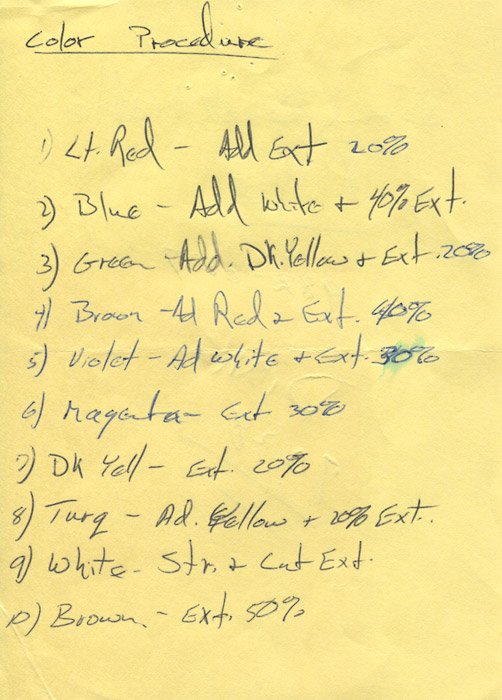 Color Procedure
1) Lt. Red - Add Ext 20%
2) Blue - Add White + 40% Ext.
3) Green - Add. DK. Yellow + Ext. 20%
4) Brown - Ad Red & Ext. 40%
5) Violet - Ad White + Ext. 30%
6) Magenta - Ext 30%
7) DK Yell - Ext. 20%
8) Turq - Ad. Yellow + 20% Ext.
9) White - Str. & Cut Ext.
10) Brown. - Ext. 50%